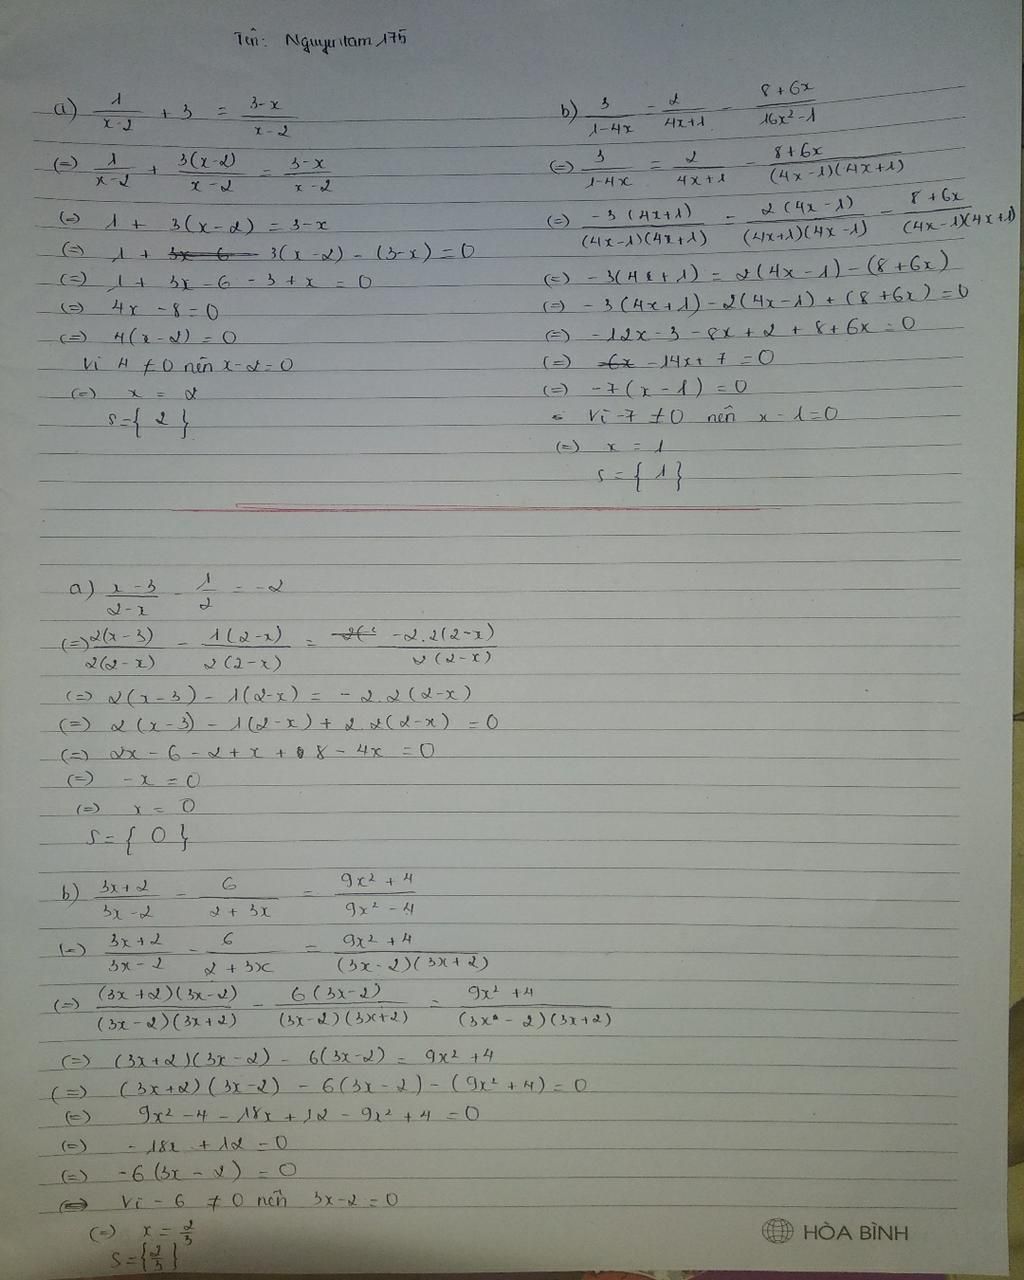 Tên: Nguyentam 175
a) \frac{1}{x-2} + 3 = \frac{3-x}{x-2}
(=) \frac{1}{x-2} + \frac{3(x-2)}{x-2} = \frac{3-x}{x-2}
(=) 1 + 3(x-2) = 3-x
(=) 1 + 3(x-2) - (3-x) = 0
(=) 1 + 3x - 6 - 3 + x = 0
(=) 4x - 8 = 0
(=) 4(x-2) = 0
Vì 4 ≠ 0 nên x-2 = 0
(=) x = 2
S={ 2 }
b) \frac{3}{1-4x} = \frac{2}{4x+1} - \frac{8+6x}{16x²-1}
(=) \frac{3}{1-4x} = \frac{2}{4x+1} - \frac{8+6x}{(4x-1)(4x+1)}
(=) \frac{-3(4x+1)}{(4x-1)(4x+1)} = \frac{2(4x-1)}{(4x+1)(4x-1)} - \frac{8+6x}{(4x-1)(4x+1)}
(=) -3(4x+1) = 2(4x-1) - (8+6x)
(=) -3(4x+1) - 2(4x-1) + (8+6x) = 0
(=) -12x - 3 - 8x + 2 + 8 + 6x = 0
(=) -14x + 7 = 0
(=) -7(x-1) = 0
Vì -7 ≠ 0 nên x-1=0
(=) x = 1
S={ 1 }
a) \frac{x-3}{2-x} - \frac{1}{2} = -2
(=) \frac{2(x-3)}{2(2-x)} - \frac{1(2-x)}{2(2-x)} = \frac{-2.2(2-x)}{2(2-x)}
(=) 2(x-3) - 1(2-x) = -2.2(2-x)
(=) 2(x-3) - 1(2-x) + 2.2(2-x) = 0
(=) 2x - 6 - 2 + x + 8 - 4x = 0
(=) -x = 0
(=) x = 0
S={ 0 }
b) \frac{3x+2}{3x-2} - \frac{6}{2+3x} = \frac{9x²+4}{9x²-4}
(=) \frac{3x+2}{3x-2} - \frac{6}{2+3x} = \frac{9x²+4}{(3x-2)(3x+2)}
(=) \frac{(3x+2)(3x-2)}{(3x-2)(3x+2)} - \frac{6(3x-2)}{(3x-2)(3x+2)} = \frac{9x²+4}{(3x-2)(3x+2)}
(=) (3x+2)(3x-2) - 6(3x-2) = 9x²+4
(=) (3x+2)(3x-2) - 6(3x-2) - (9x²+4) = 0
(=) 9x²-4 - 18x + 12 - 9x² + 4 = 0
(=) -18x + 12 = 0
(=) -6(3x-2) = 0
(=) Vì -6 ≠ 0 nên 3x-2 = 0
(=) x = \frac{2}{3}
S={\frac{2}{3}}
HÒA BÌNH